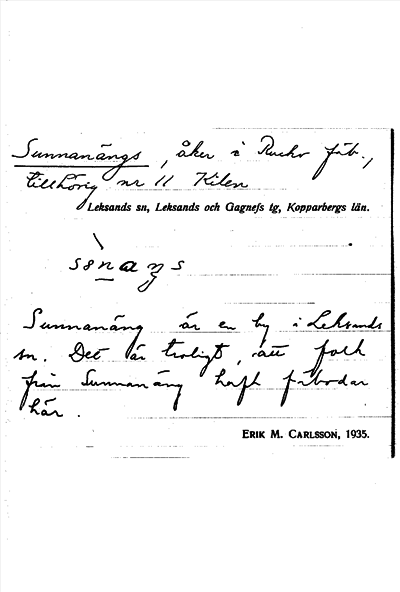 Sunnanängs, åker i Ruckr fäb.,
tillhörig nr 11 Kilen
Leksands sn, Leksands och Gagnefs tg, Kopparbergs län.
Sunnanäng är en by i Leksands
sn. Det är troligt, att folk
från Sunnanäng haft fäbodar
här.
ERIK M. CARLSSON, 1935.